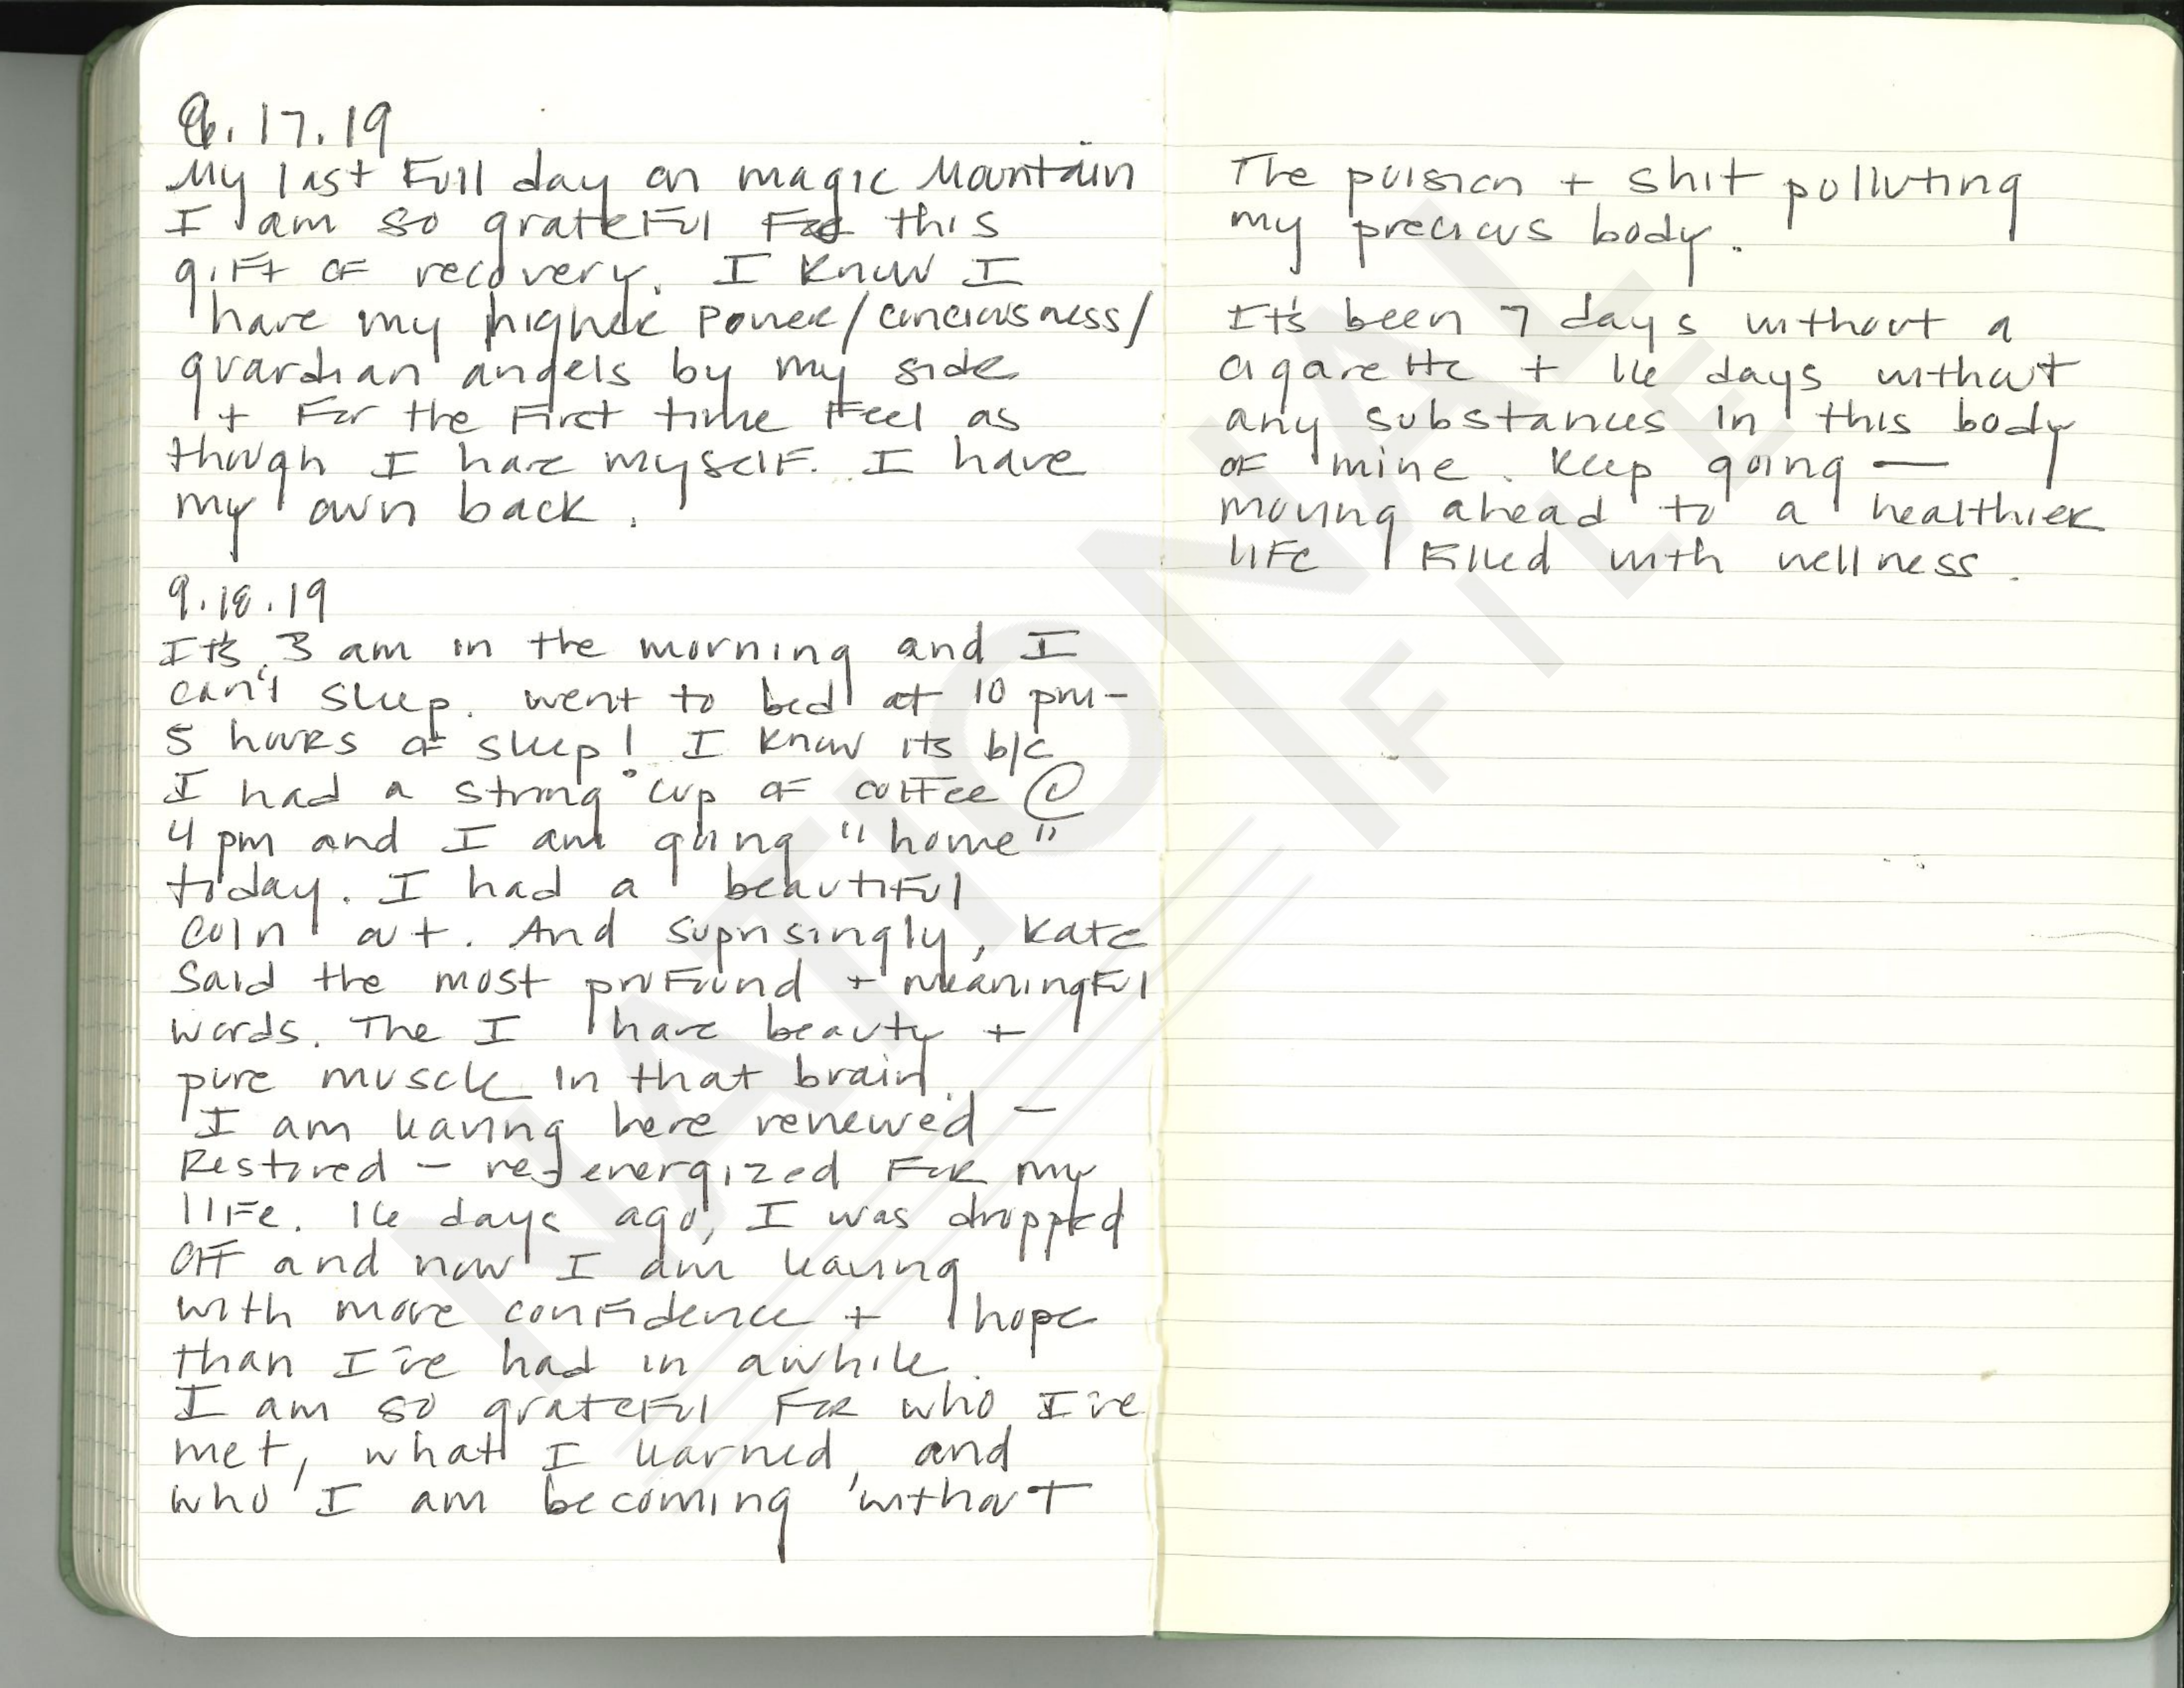 9.17.19
My last Full day on magic Mountain
I am so grateful For this
gift of recovery. I know I
have my higher power/conciousness/
guardian angels by my side
+ For the First time Feel as
though I have myself. I have
my own back.
9.18.19
It's 3 am in the morning and I
can't sleep. went to bed at 10 pm-
5 hours of sleep! I know its b/c
I had a strong cup of coffee @
4 pm and I am going "home"
today. I had a beautiful
coin out. And suprisingly, Kate
said the most profound + meaningful
words. The I have beauty +
pure muscle in that brain.
I am leaving here renewed -
Restored - re-energized For my
life. 16 days ago, I was dropped
off and now I am leaving
with more confidence + hope
than I've had in awhile.
I am so grateful For who I've
met, what I learned, and
who I am becoming without
The poision + shit polluting
my precious body.
It's been 7 days without a
cigarette + 16 days without
any substances in this body
of mine. Keep going —
moving ahead to a healthier
life filled with wellness.
NATIONAL
FILE